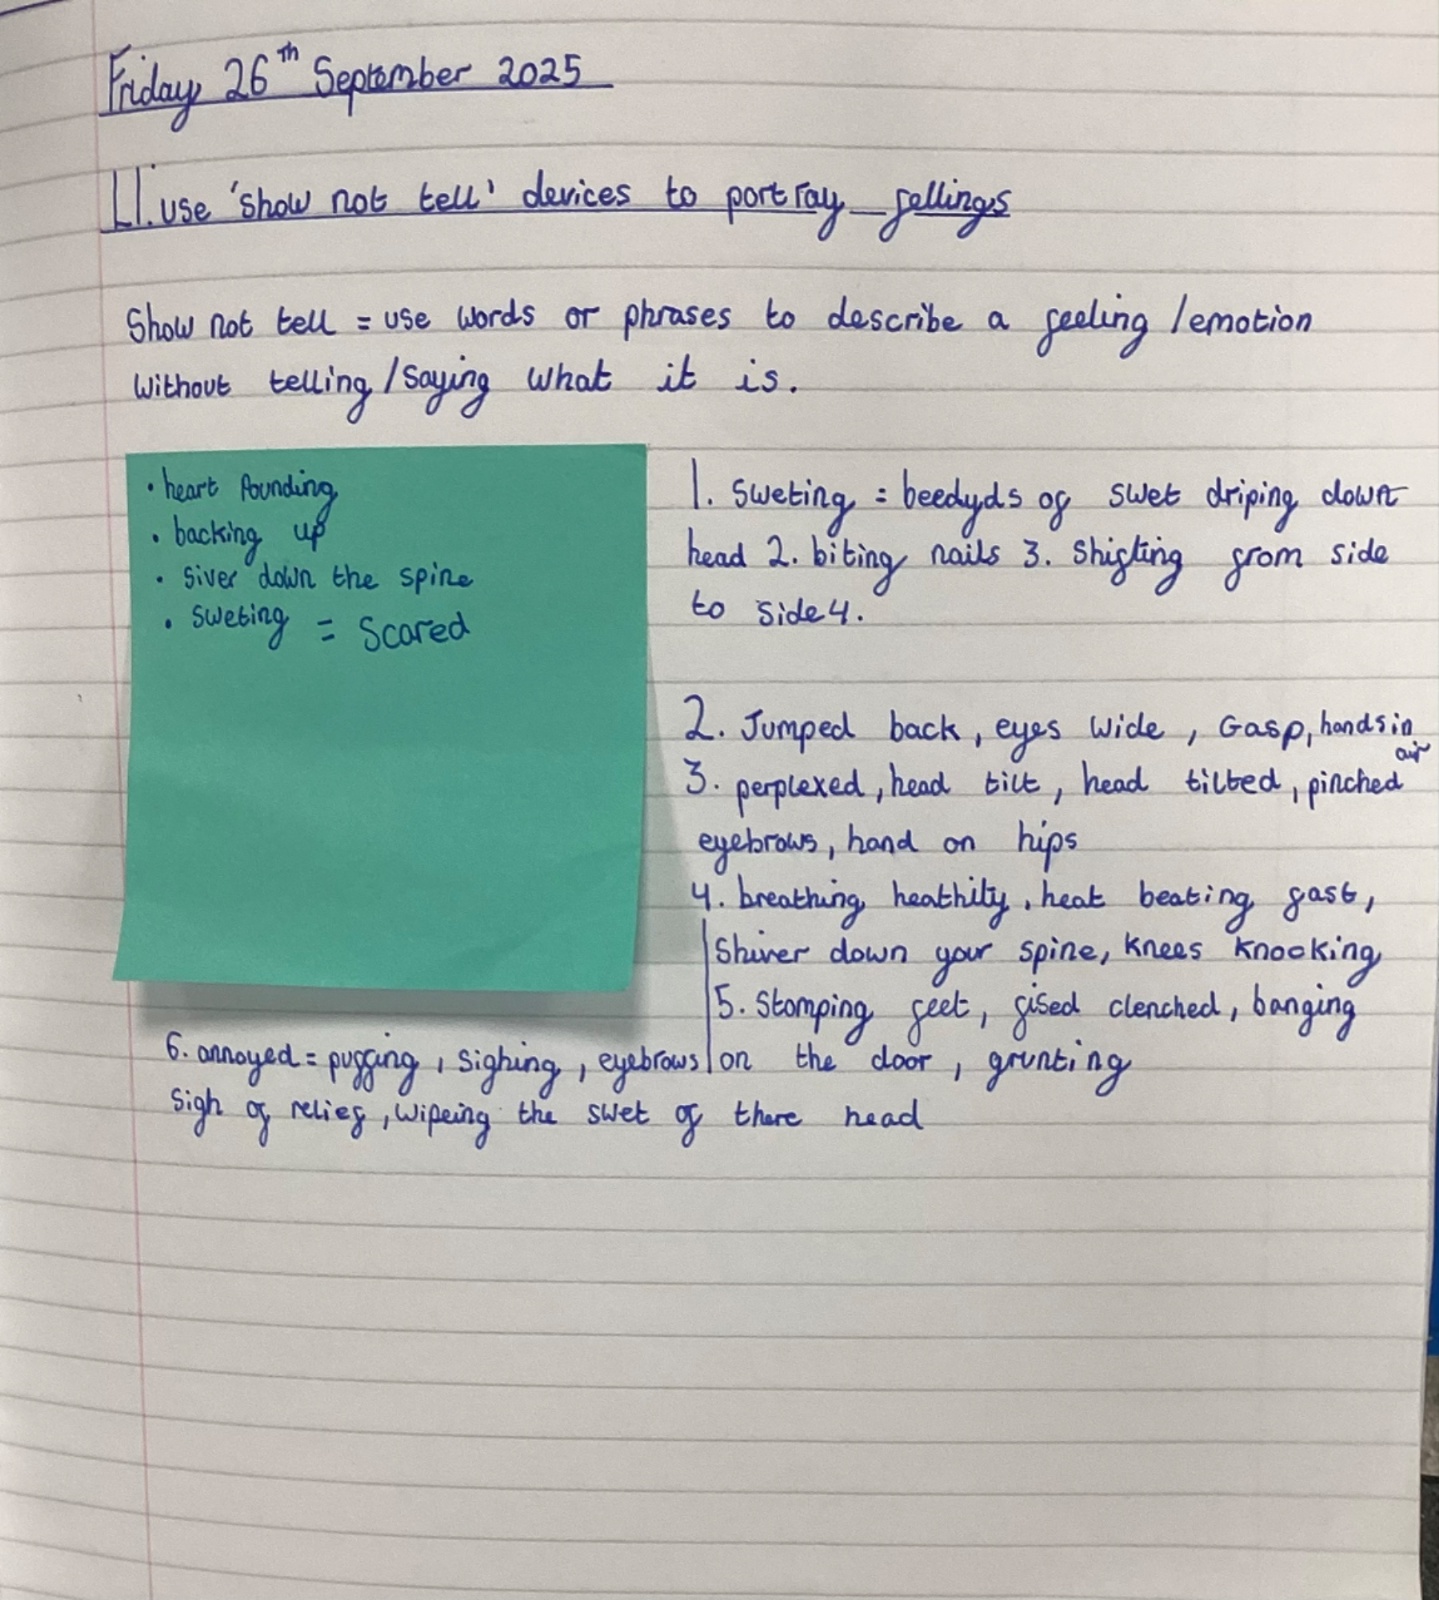 Friday 26th September 2025
LI. use 'show not tell' devices to portray fellings
Show not tell = use words or phrases to describe a feeling /emotion
without telling/saying what it is.
• heart Pounding
• backing up
• siver down the spine
• sweting = Scared
1. sweting = beedyds of swet driping down
head 2. biting nails 3. Shifting from side
to side 4.
2. Jumped back, eyes wide, Gasp, hands in air
3. perplexed, head tilt, head tilted, pinched
eyebrows, hand on hips
4. breathing heathily, heat beating fast,
Shiver down your spine, knees knocking
5. Stomping feet, fised clenched, banging
on the door, grunting
6. annoyed = puffing, sighing, eyebrows
Sigh of relief, wipeing the swet of there head